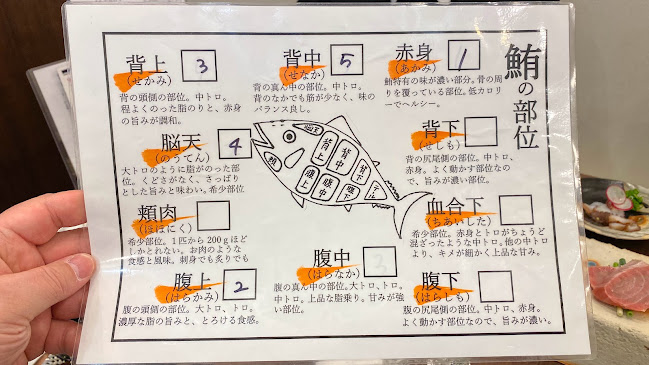 鮪の部位
赤身
(あかみ)
1
鮪特有の味が濃い部分。骨の周
りを覆っている部位。低カロリ
ーでヘルシー。
背中
(せなか)
5
背の真ん中の部位。中トロ。
背のなかでも筋が少なく、味の
バランス良し。
背上
(せかみ)
3
背の頭側の部位。中トロ。
程よくのった脂のりと、赤身
の旨みが調和。
背下
(せしも)
背の尻尾側の部位。中トロ、
赤身。よく動かす部位なの
で、旨みが濃い部位。
脳天
(のうてん)
4
大トロのように脂がのった部
位。くどさがなく、さっぱり
とした旨みと味わい。希少部位
血合下
(ちあいした)
希少部位。赤身とトロがちょうど
混ざったような中トロ。他の中トロ
より、キメが細かく上品な甘み。
頬肉
(ほほにく)
希少部位。1匹から200gほど
しかとれない。お肉のような
食感と風味。刺身でも炙りでも
腹中
(はらなか)
3
腹の真ん中の部位。大トロ、トロ。
中トロ。上品な脂乗り。甘みが強
い部位。
腹上
(はらかみ)
2
腹の頭側の部位。大トロ、トロ。
濃厚な脂の旨みと、とろける食感。
腹下
(はらしも)
腹の尻尾側の部位。中トロ、赤身。
よく動かす部位なので、旨みが濃い。
脳天
背上
背中
背下
頬
腹上
腹中
腹下
テール